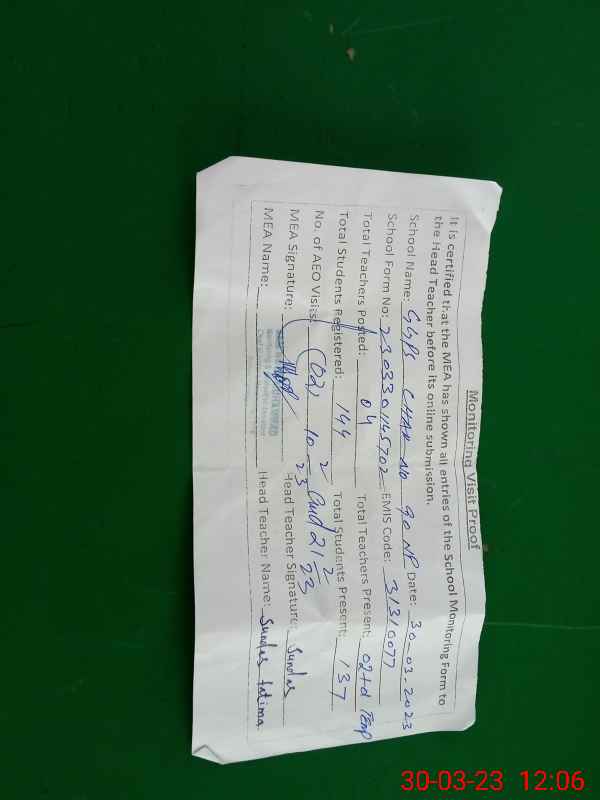 Monitoring Visit Proof
It is certified that the MEA has shown all entries of the School Monitoring Form to
the Head Teacher before its online submission.
School Name: GGPS CHAK No 90 NP Date: 30-03-2023
School Form No: 230330145702 EMIS Code: 31310077
Total Teachers Posted: 04 Total Teachers Present: 02+d Temp
Total Students Registered: 144 Total Students Present: 137
No. of AEO Visits: (02) 10-2-23 and 21-2-23
MEA Signature: Head Teacher Signature: Sundas
MEA Name: Head Teacher Name: Sundas fatima
30-03-23 12:06